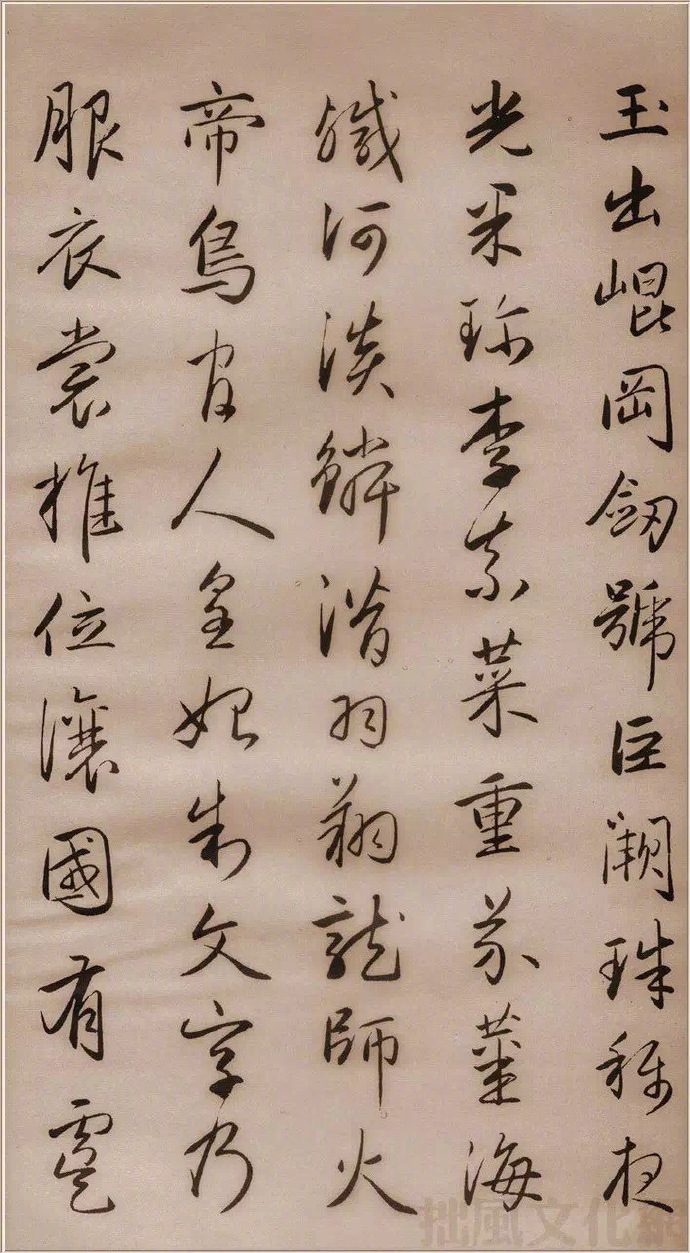 玉出崐岡劒號巨闕珠称夜
光果珎李柰菜重芥薑海
鹹河淡鱗潛羽翔龍師火
帝鳥官人皇始制文字乃
服衣裳推位讓國有虞
拙風文化網